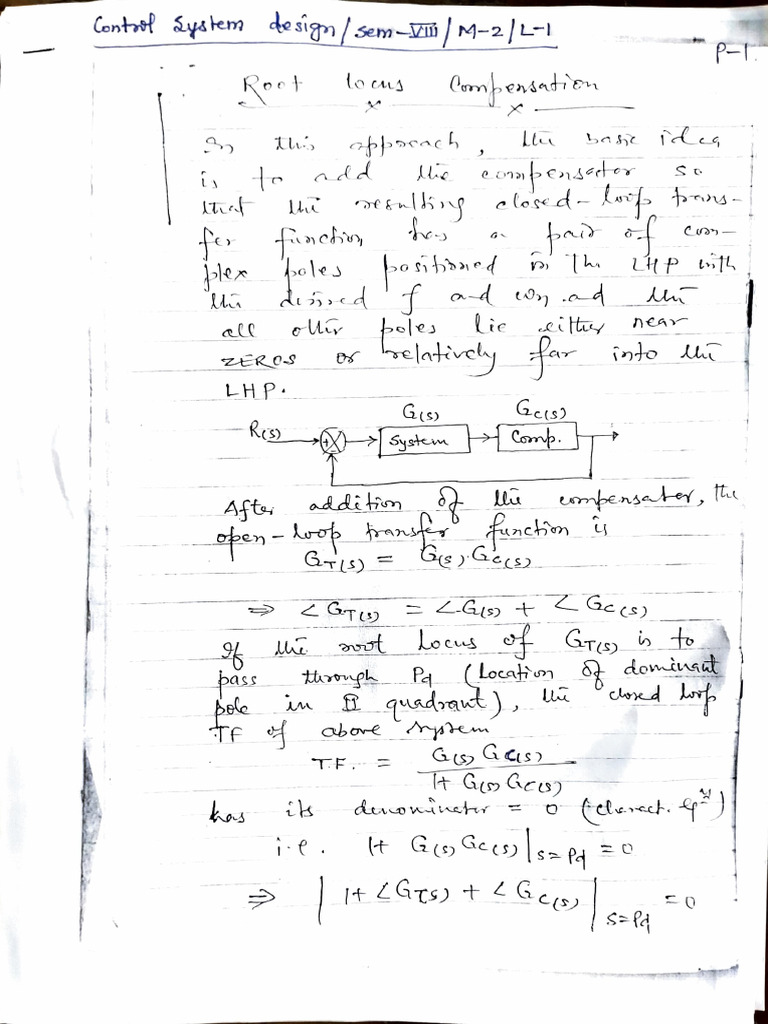 Control System design/sem-VIII/M-2/L-1
P-1
Root locus Compensation
In this approach, the basic idea
is to add the compensator so
that the resulting closed-loop trans-
fer function has a pair of com-
plex poles positioned in the LHP with
the desired ζ and ωn and the
all other poles lie either near
ZEROS or relatively far into the
LHP.
G(s) Gc(s)
R(s) + System Comp.
After addition of the compensator, the
open-loop transfer function is
GT(s) = G(s).Gc(s)
⇒ ∠GT(s) = ∠G(s) + ∠Gc(s)
If the root Locus of GT(s) is to
pass through Pd (Location of dominant
pole in II quadrant), the closed loop
TF of above system
T.F. = G(s) Gc(s)
1+ G(s) Gc(s)
has its denominator = 0 (charact. Eqn)
i.e. 1+ G(s) Gc(s)|s=Pd = 0
⇒ |1+ ∠GT(s) + ∠Gc(s)|s=Pd = 0